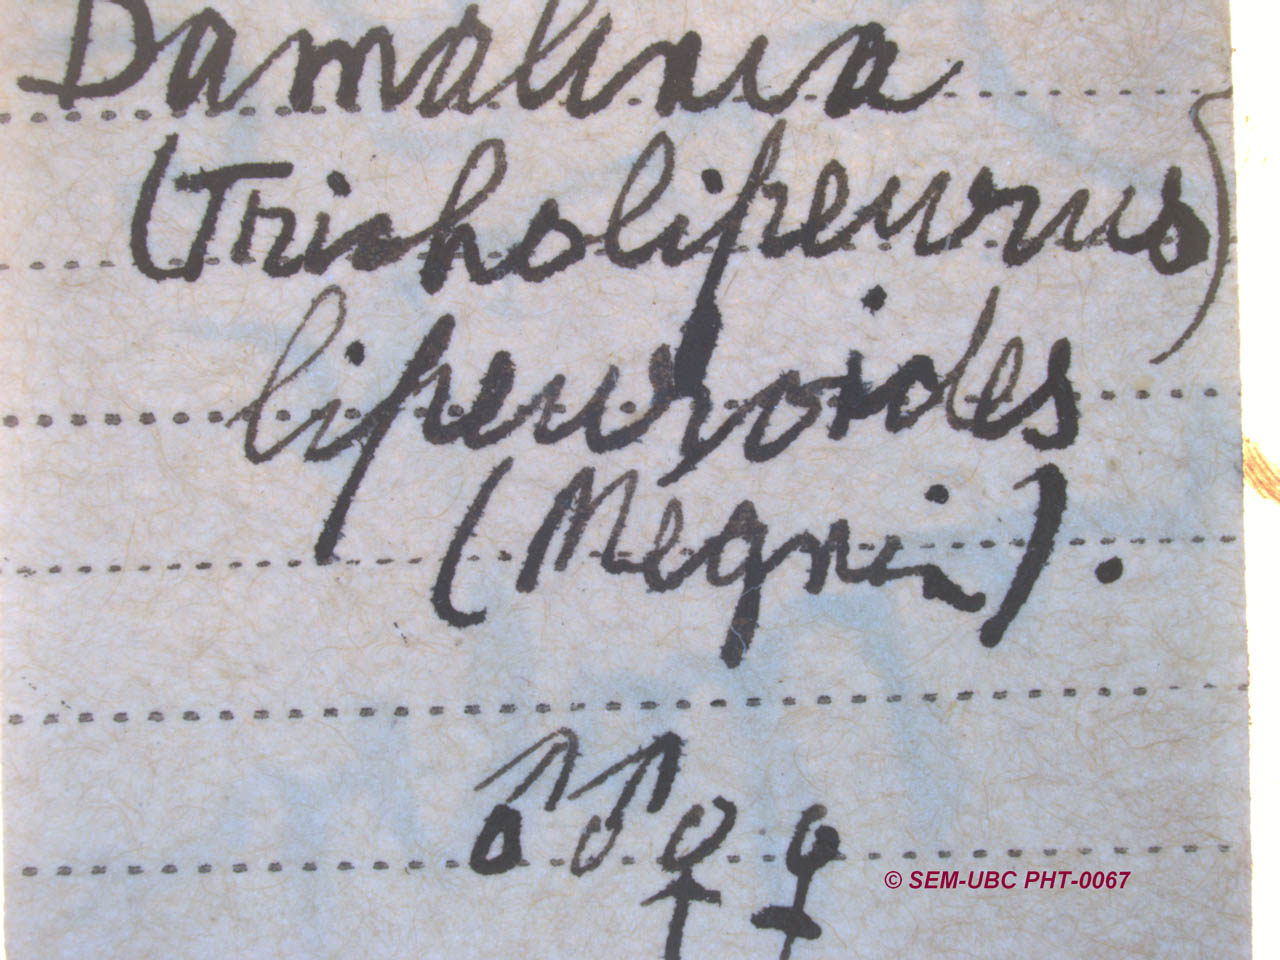 Damalinia
(Tricholipeurus)
lipeuroides
(Megnin).
♂♂♀♀
© SEM-UBC PHT-0067